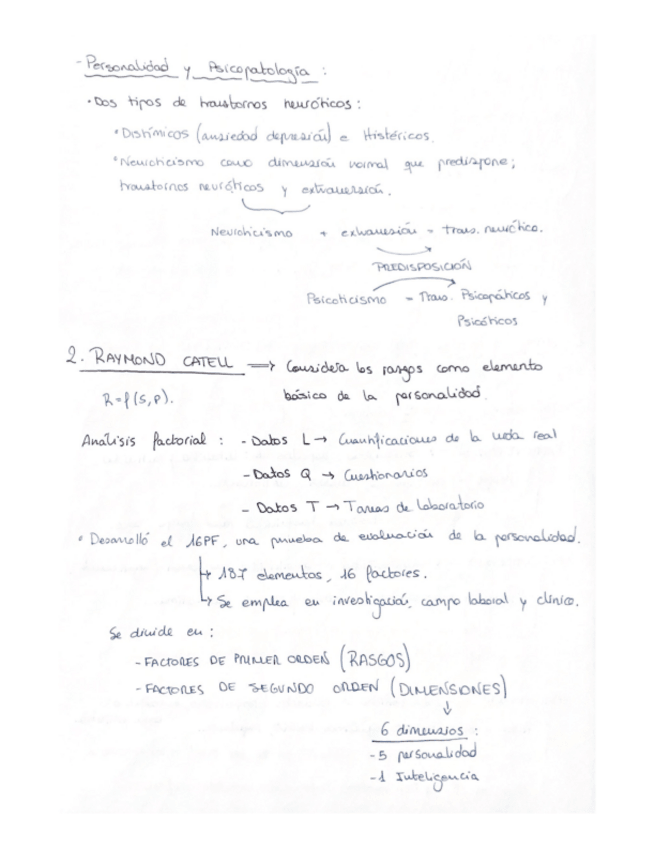 - Personalidad y Psicopatología :
· Dos tipos de trastornos neuróticos :
· Distímicos (ansiedad depresión) e Histéricos.
· Neuroticismo como dimensión normal que predispone ;
trastornos neuróticos y extraversión.
Neuroticismo + extraversión = trans. neurótico.
PREDISPOSICIÓN
Psicoticismo = Trans. Psicopáticos y
Psicóticos
2. RAYMOND CATELL ⟹ Considera los rasgos como elemento
R=f(S,P). básico de la personalidad.
Análisis factorial : - Datos L → Cuantificaciones de la vida real
- Datos Q → Cuestionarios
- Datos T → Tareas de laboratorio
· Desarrolló el 16PF, una prueba de evaluación de la personalidad.
↳ 187 elementos, 16 factores.
↳ Se emplea en investigación, campo laboral y clínico.
Se divide en :
- FACTORES DE PRIMER ORDEN (RASGOS)
- FACTORES DE SEGUNDO ORDEN (DIMENSIONES)
↓
6 dimensios :
- 5 personalidad
- 1 Inteligencia